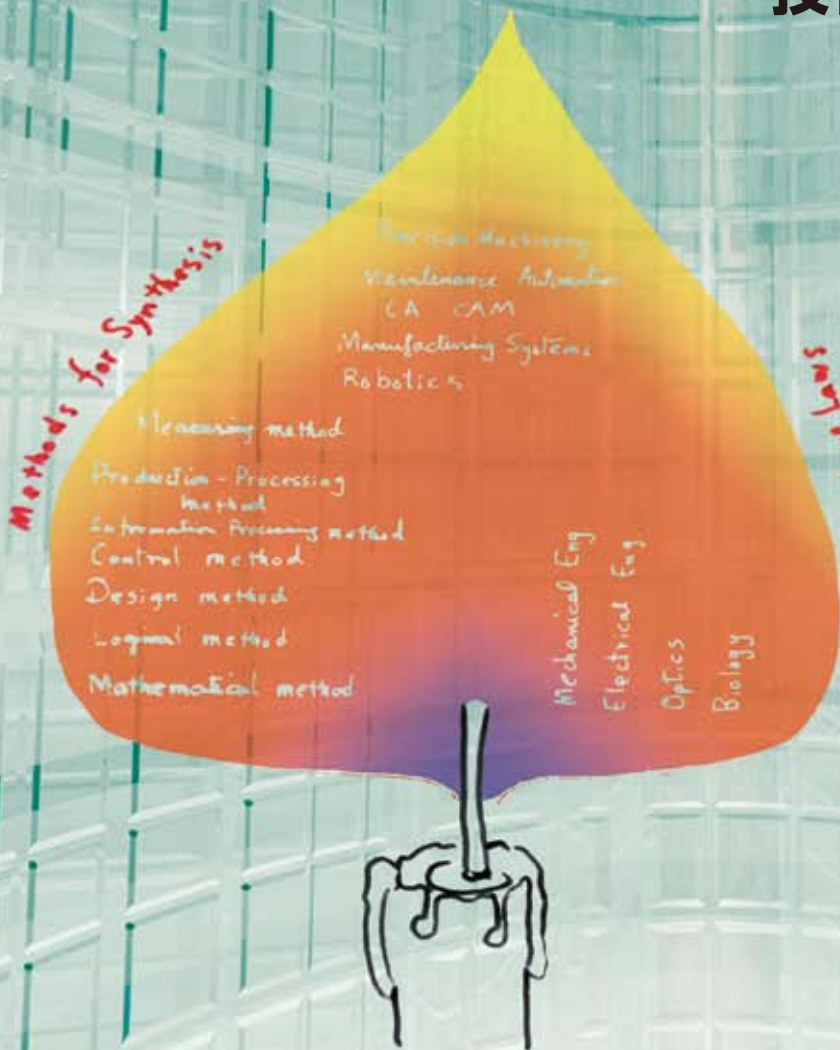 技
Methods for Synthesis
Laws
Precision Machinery
Maintenance Automation
CA CAM
Manufacturing Systems
Robotics
Measuring method
Production-Processing
method
Information Processing method
Control method
Design method
Logical method
Mathematical method
Mechanical Eng
Electrical Eng.
Optics
Biology